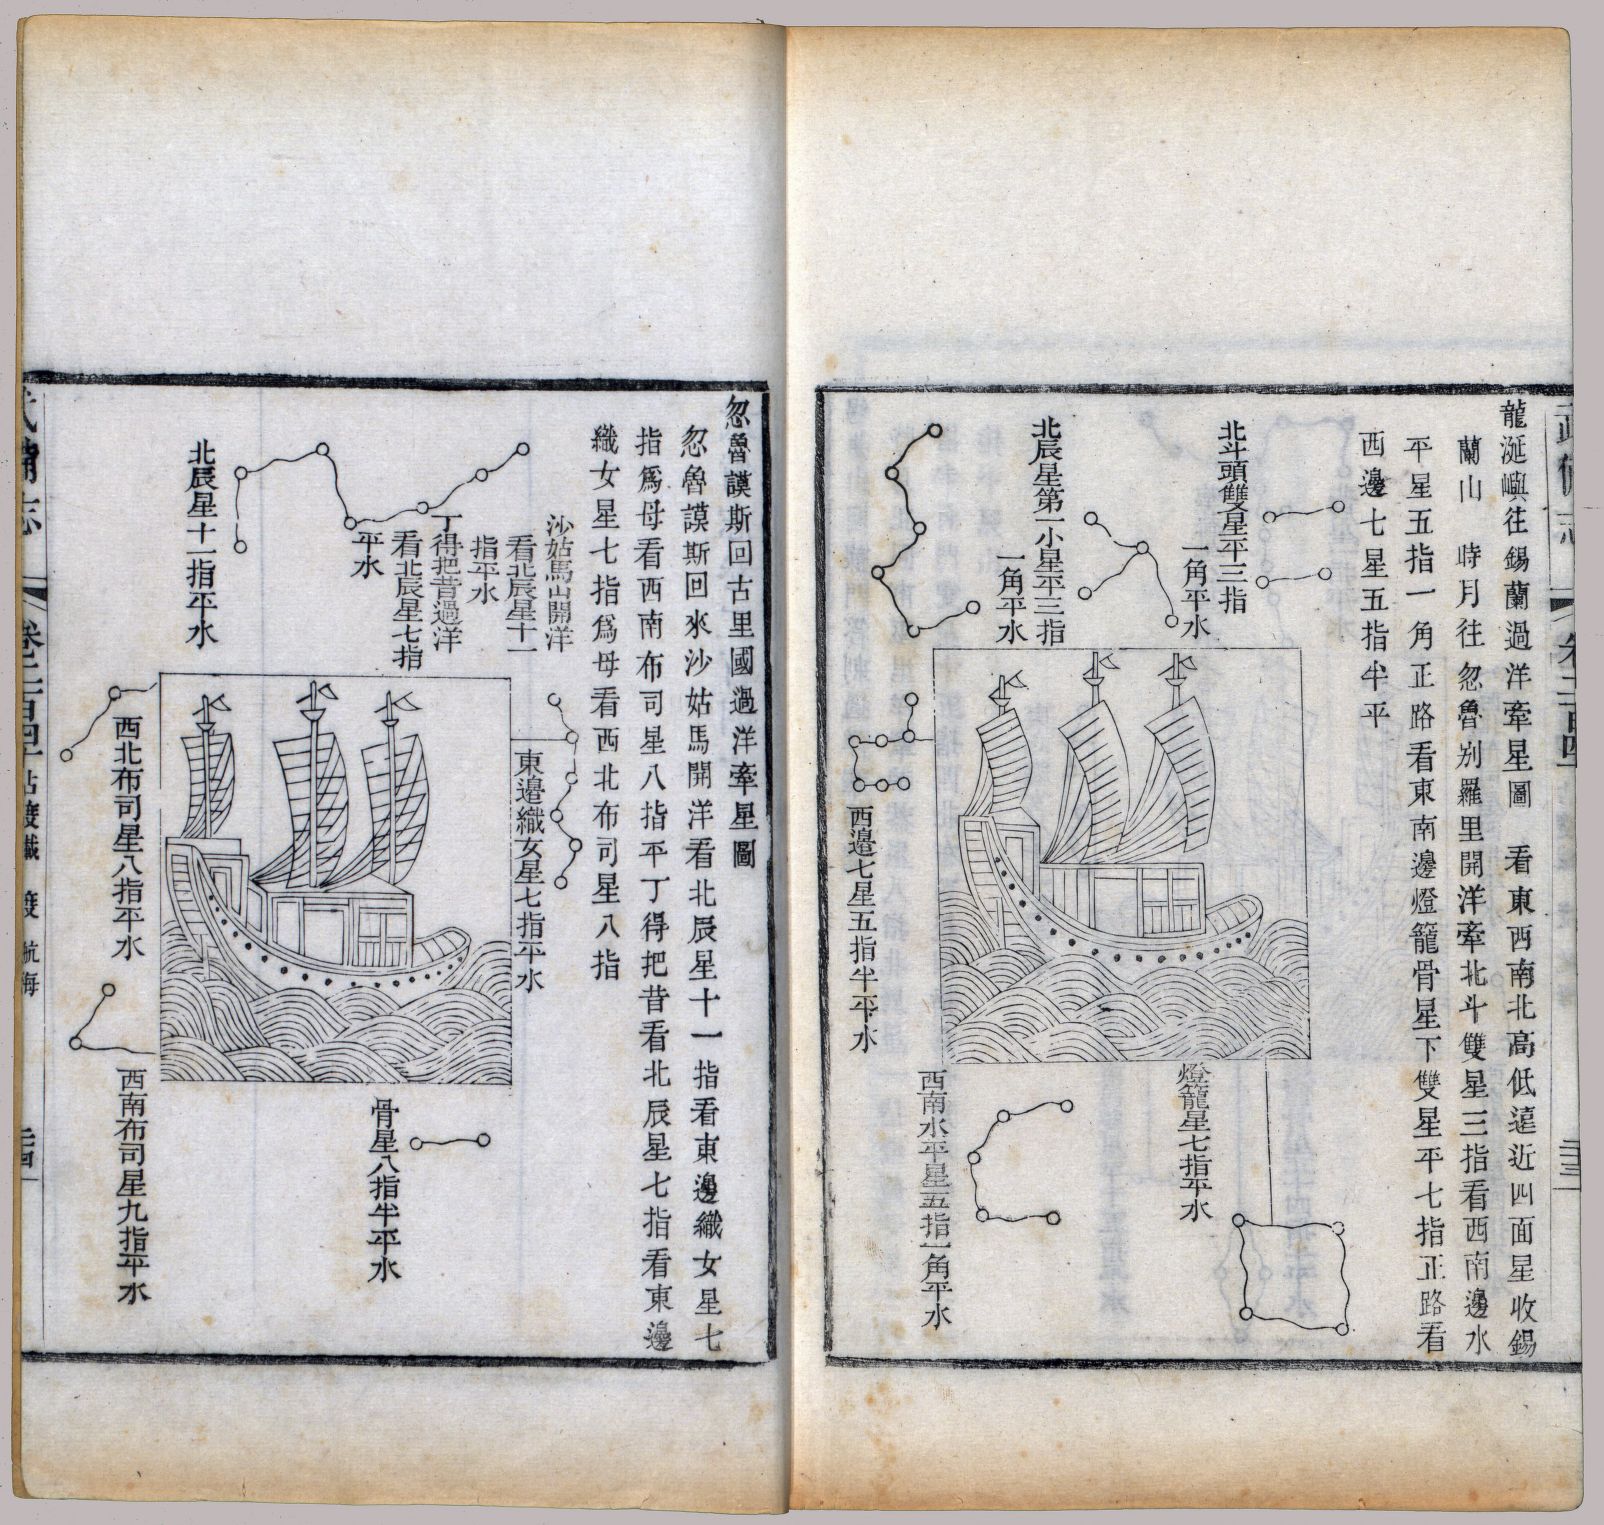 龍涎嶼往錫蘭過洋牽星圖 看東西南北高低遠近四面星收錫
蘭山 時月往忽魯別羅里開洋牽北斗雙星三指看西南邊水
平星五指一角正路看東南邊燈籠骨星下雙星平七指正路看
西邊七星五指半平
北斗頭雙星平三指
一角平水
北辰星第一小星平三指
一角平水
西邊七星五指半平水
燈籠星七指平水
西南水平星五指一角平水
忽魯謨斯回古里國過洋牽星圖
忽魯謨斯回來沙姑馬開洋看北辰星十一指看東邊織女星七
指爲母看西南布司星八指平丁得把昔看北辰星七指看東邊
織女星七指爲母看西北布司星八指
沙姑馬山開洋
看北辰星十一
指平水
丁得把昔過洋
看北辰星七指
平水
北辰星十一指平水
東邊織女星七指平水
西北布司星八指平水
骨星八指半平水
西南布司星九指平水
武備志
卷二百四十
航海